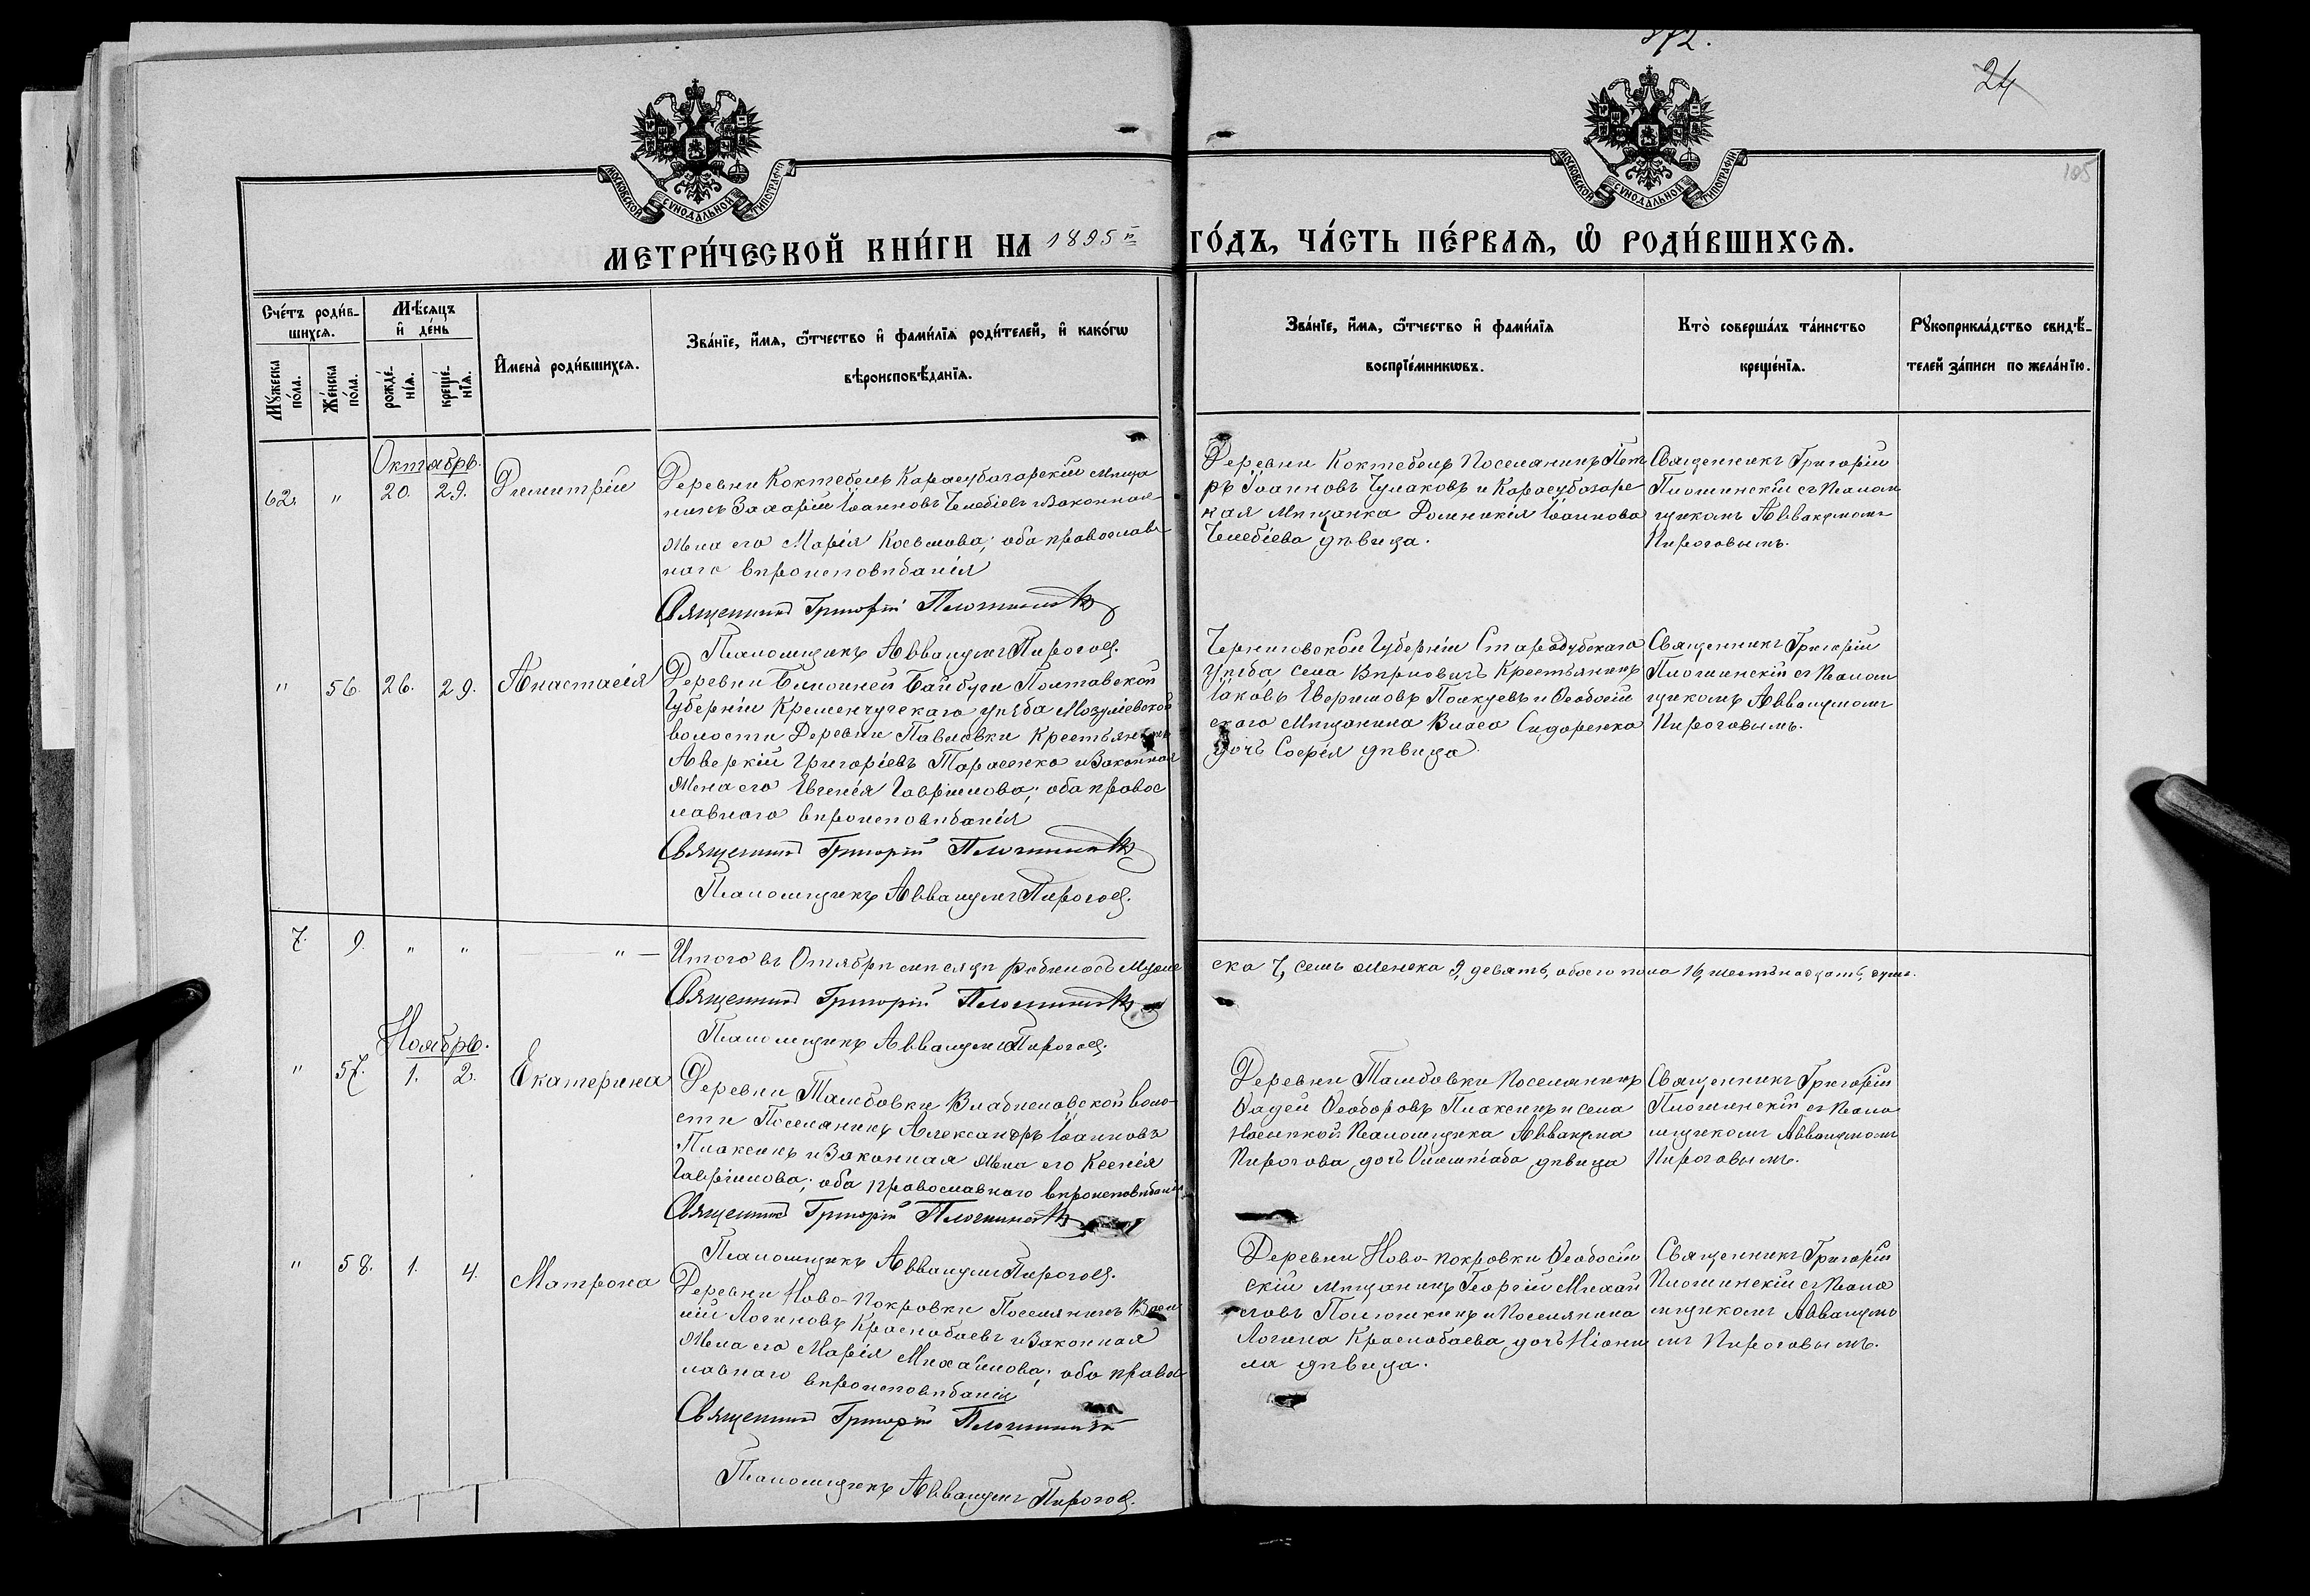 372.
24
105
МОСКОВСКОЙ СѴНОДАЛЬНОЙ ТИПОГРАФІИ
МОСКОВСКОЙ СѴНОДАЛЬНОЙ ТИПОГРАФІИ
МЕТРИ́ЧЕСКОЙ КНИ́ГИ НА 1895й ГО́ДЪ, ЧА́СТЬ ПЕ́РВАѦ, Ѡ҆ РОДИ́ВШИХСѦ.
Сче́тъ роди́в-
шихсѧ.
Мꙋ́жеска по́ла.
Же́нска по́ла.
Мѣ́сѧцъ
и҆ де́нь
рожде́-нїѧ.
креще́-нїѧ.
И҆мена̀ роди́вшихсѧ.
Зва́нїе, и҆́мѧ, ѻ҆́тчество и҆ фами́лїѧ роди́телей, и҆ како́гѡ
вѣроисповѣ́данїѧ.
Зва́нїе, и҆́мѧ, ѻ҆́тчество и҆ фами́лїѧ
воспрїе́мникѡвъ.
Кто̀ соверша́лъ та́инство
креще́нїѧ.
Рꙋкоприкла́дство свидѣ́-
телей за́писи по жела́нїю.
Октябрь.
62. " 20. 29. Димитрій
Деревни Коктебель Карасубазарскій мѣща
нинъ Захарій Іоанновъ Челебіевъ и Законная
Жена его Марія Косьмова; оба православ
наго вѣроисповѣданія
Священникъ Григорій Плошинскій
Псаломщикъ Аввакумъ Пироговъ.
Деревни Коктебель Поселянинъ Пет
ръ Іоанновъ Чумаковъ и Карасубазарс
кая Мѣщанка Домникія Іоаннова
Челебіева дѣвица.
Священникъ Григорій
Плошинскій съ Псалом
щикомъ Аввакумомъ
Пироговымъ.
" 56. 26. 29. Анастасія
Деревни Ближней Байбуги Полтавской
Губерніи Кременчугскаго уѣзда
волости Деревни Павловки Крестьянинъ
Аверкій Григоріевъ Тарасенко и Законная
Жена его Евгенія Гавріилова; оба правос
лавнаго вѣроисповѣданія
Священникъ Григорій Плошинскій
Псаломщикъ Аввакумъ Пироговъ.
Черниговской Губерніи Стародубскаго
Уѣзда села Крестьянинъ
Іаковъ и Ѳеодосій
скаго Мѣщанина Власа Сидоренка
дочь Софія дѣвица
Священникъ Григорій
Плошинскій съ Псалом
щикомъ Аввакумомъ
Пироговымъ.
7. 9. " " "
Итого въ Октябрѣ мѣсяцѣ родилось Муже
ска 7, семь женска 9, девять, обоего пола 16, шестнадцать, душъ.
Священникъ Григорій Плошинскій
Псаломщикъ Аввакумъ Пироговъ.
Ноябрь.
" 57. 1. 2. Екатерина
Деревни Тамбовки Владиславской воло-
сти Поселянинъ Александръ Іоанновъ
Плаксинъ и Законная Жена его Ксенія
Гавріилова; оба православнаго вѣроисповѣданія
Священникъ Григорій Плошинскій
Псаломщикъ Аввакумъ Пироговъ.
Деревни Тамбовки Поселянинъ
Ѳадей Ѳеодоровъ Плаксинъ и села
Насыпкой Псаломщика Аввакума
Пирогова дочь Олимпіада дѣвица
Священникъ Григорій
Плошинскій съ Псало
мщикомъ Аввакумомъ
Пироговымъ.
" 58. 1. 4. Матрона
Деревни Ново-Покровки Поселянинъ Васи
лій Логиновъ Краснобаевъ и Законная
Жена его Марія Михайлова; оба право
лавнаго вѣроисповѣданія
Священникъ Григорій Плошинскій
Псаломщикъ Аввакумъ Пироговъ.
Деревни Ново-покровки Ѳеодосій
скій мѣщанинъ Георгій Михай
ловъ и Поселянина
Логина Краснобаева дочь Неони
ла дѣвица.
Священникъ Григорій
Плошинскій съ Псало
мщикомъ Аввакумо
мъ Пироговымъ.